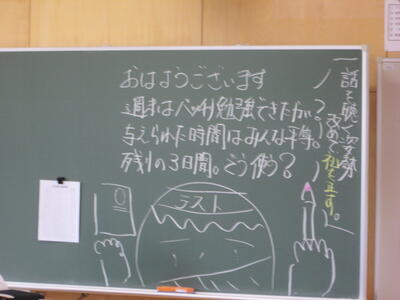 一話を聴く姿勢
改めて、私を正す。
おはようございます
週末はバッチリ勉強できたか?
与えられた時間はみんな平等。
残りの3日間。どう使う?
テスト